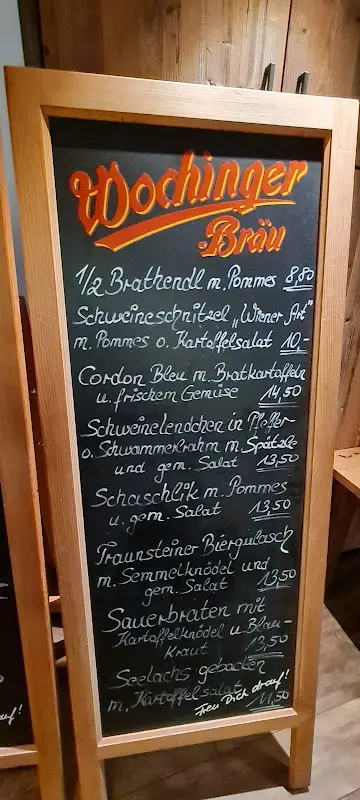 Wochinger
-Bräu
1/2 Brathendl m. Pommes 8,80
Schweineschnitzel „Wiener Art"
m. Pommes o. Kartoffelsalat 10,-
Cordon Bleu m. Bratkartoffeln
u. frischem Gemüse 14,50
Schweinelendchen in Pfeffer
o. Schwammerlrahm m. Spätzle
und gem. Salat 13,50
Schaschlik m. Pommes
u. gem. Salat 13,50
Traunsteiner Biergulasch
m. Semmelknödel und
gem. Salat 13,50
Sauerbraten mit
Kartoffelknödel u. Blau-
Kraut 13,50
Seelachs gebacken
m. Kartoffelsalat 11,50
Freu Dich drauf!
auf!